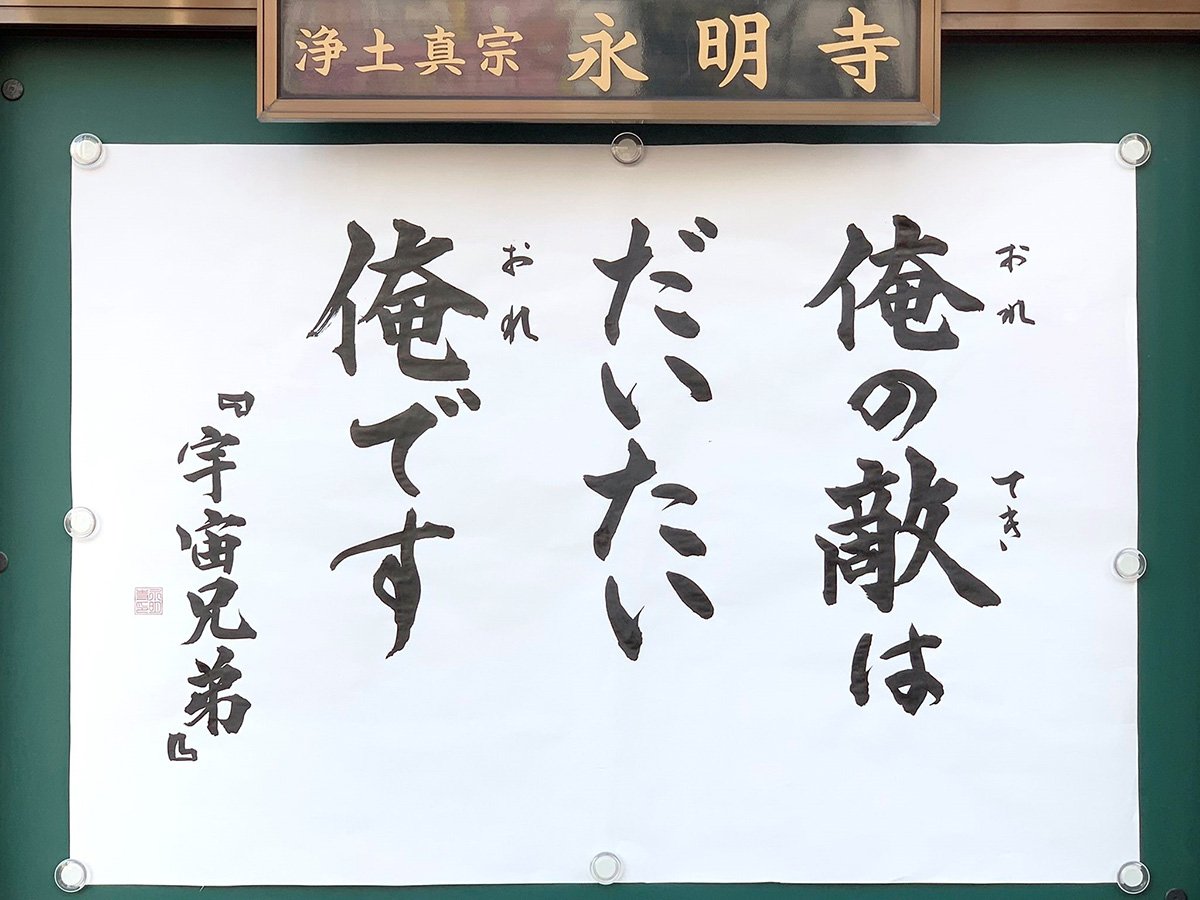 浄土真宗 永明寺
俺の敵は
おれ
てき
だいたい
俺です
おれ
『宇宙兄弟』